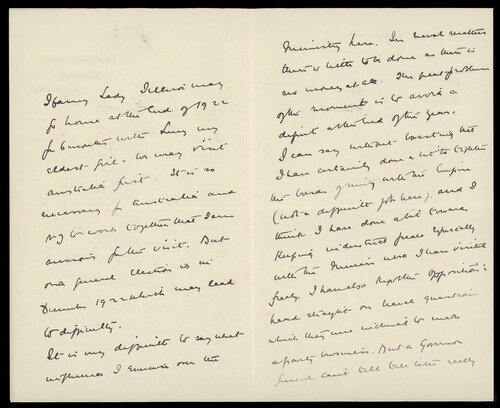 I fancy Lady Jellicoe may
go home at the End of 1922
for 6 months with Lucy my
eldest girl. We may visit
Australia first. It is so
necessary for Australia and
NZ to work together that I am
anxious for the visit. But
our general election is in
December 1922 which may lead
to difficulty.
It is very difficult to say what
influence I exercise over the
Ministry here. In naval matters
there is little to be done as there is
no money at all. The great problem
of the moment is to avoid a
deficit at the End of the year.
I can say without boasting that
I have certainly done a lot to tighten
the bonds of unity with the Empire
(not a difficult job here), and I
think I have done a bit towards
keeping industrial peace especially
with the Miners who I have visited
freely. I have also kept the Opposition's
head straight on naval questions
which they were inclined to make
a party business. But a Governor
General can't tell till later really